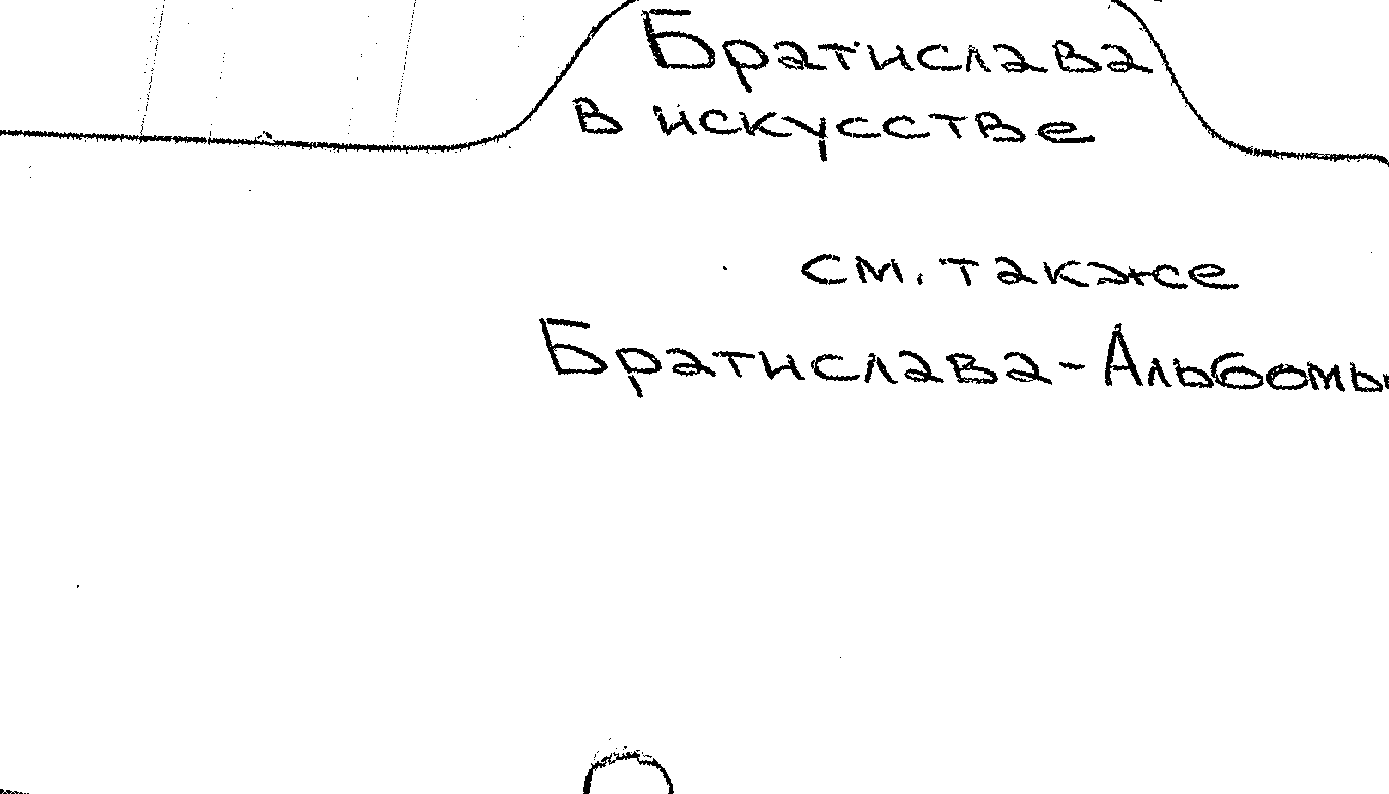 Братислава
в искусстве
см. также
Братислава-Альбомы